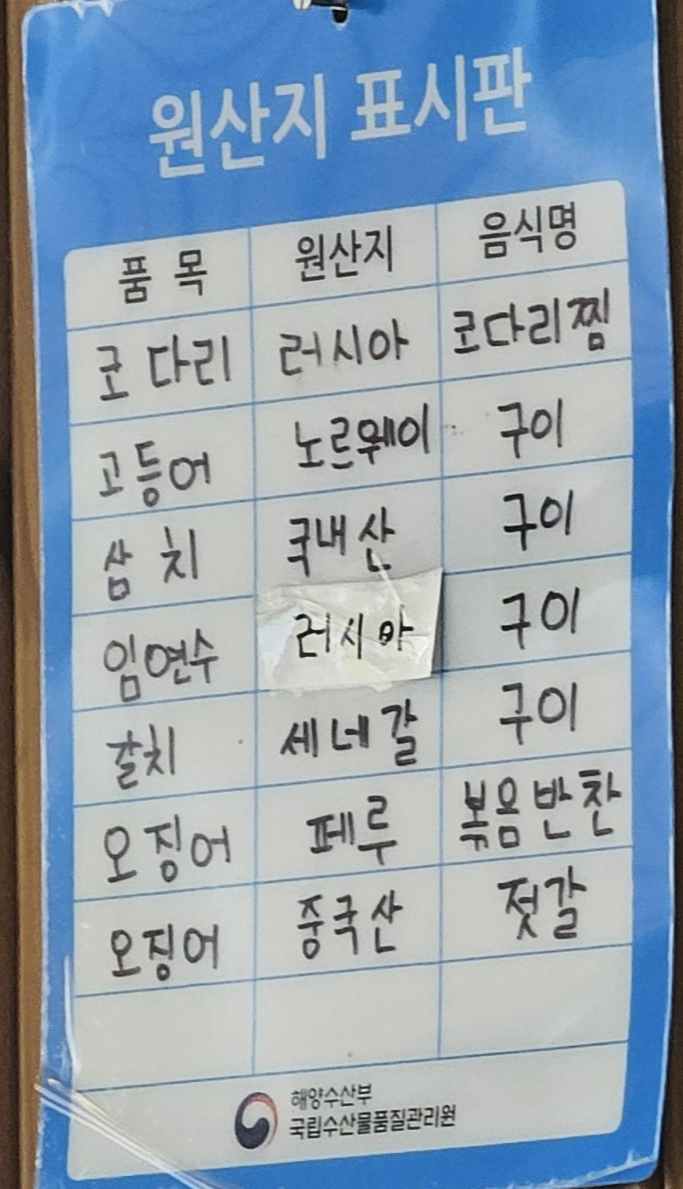 원산지 표시판
품 목 원산지 음식명
코다리 러시아 코다리찜
고등어 노르웨이 구이
삼치 국내산 구이
임연수 러시아 구이
갈치 세네갈 구이
오징어 페루 볶음반찬
오징어 중국산 젓갈
해양수산부
국립수산물품질관리원